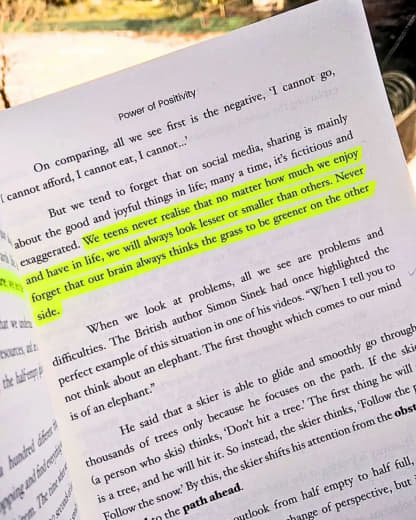 Power of Positivity
On comparing, all we see first is the negative, 'I cannot go,
I cannot afford, I cannot eat, I cannot...'
But we tend to forget that on social media, sharing is mainly
about the good and joyful things in life; many a time, it's fictitious and
exaggerated. We teens never realise that no matter how much we enjoy
and have in life, we will always look lesser or smaller than others. Never
forget that our brain always thinks the grass to be greener on the other
side.
When we look at problems, all we see are problems and
difficulties. The British author Simon Sinek had once highlighted the
perfect example of this situation in one of his videos. "When I tell you to
not think about an elephant. The first thought which comes to our mind
is of an elephant."
He said that a skier is able to glide and smoothly go through
thousands of trees only because he focuses on the path. If the skier
(a person who skis) thinks, 'Don't hit a tree.' The first thing he will
is a tree, and he will hit it. So instead, the skier thinks, 'Follow the
Follow the snow.' By this, the skier shifts his attention from the
to the path ahead.
outlook from half empty to half full,
change of perspective, but
the half-empty
a hundred